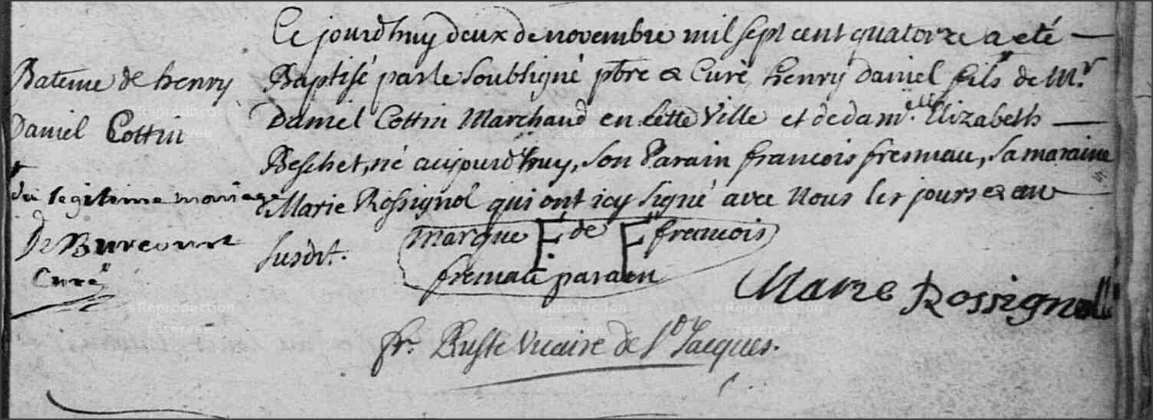 Ce jourd'huy deux de novembre mil sept cent quatorze a eté
Bateme de henry
Baptisé par le Soubsigné pbre & Curé, henry Daniel fils de Mr
Daniel Cottin
Daniel Cottin Marchand en cette Ville et de dam.elle Elizabeth
Beschet, né aujourd'huy, Son Parain francois fresneau, Sa maraine
du legitime mariage
Marie Rossignol qui ont icy signé avec Nous les jours & an
De
Curé
susdit.
marque F de F francois
fremau parain
Marie Rossignol
fr. Vicaire de St Jacques.
©Reproduction reservée